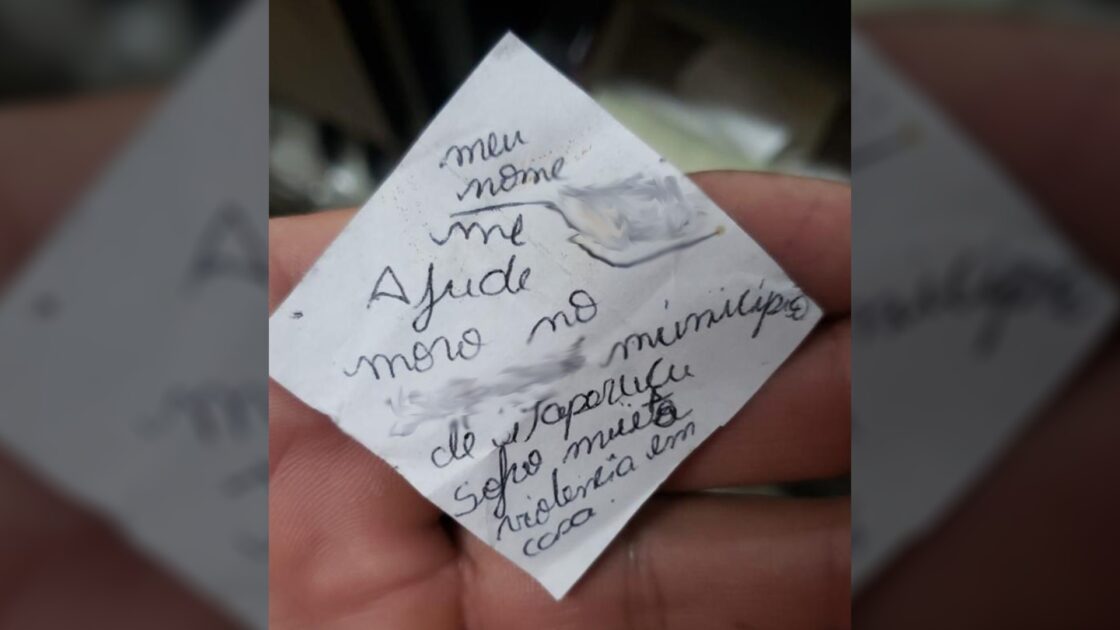 meu
nome
me
Ajude
moro no
município
de itaporucu
Sofro muito
violencia em
casa.